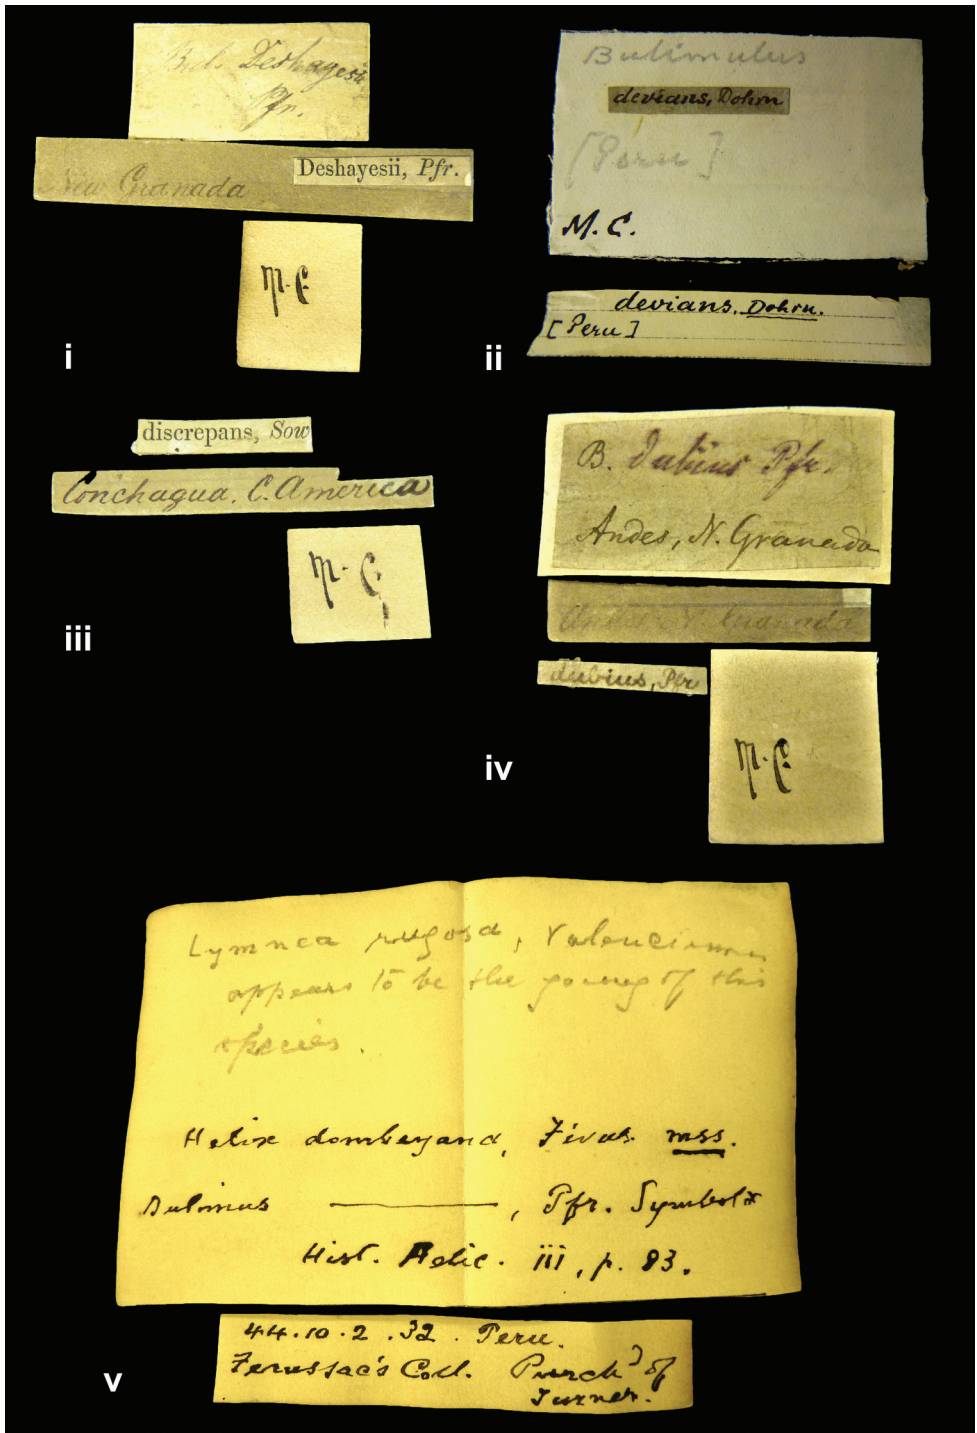 Bul. Deshayesii
Pfr.
Deshayesii, Pfr.
New Granada
M. C
i
Bulimulus
devians, Dohrn
[Peru]
M. C.
devians. Dohrn.
[Peru]
ii
discrepans, Sow
Conchagua. C. America
M. C
iii
B. dubius Pfr.
Andes, N. Granada
Andes N. Granada
dubius, Pfr
M. C
iv
Lymnea rugosa, Valenciennes
appears to be the young of this
species.
Helix dombeyana, Férus. mss.
Bulimus ———, Pfr. Symbolæ
Hist. Helic. iii, p. 83.
44.10.2.32. Peru.
Ferussac's Coll. Purchd of
Turner.
v